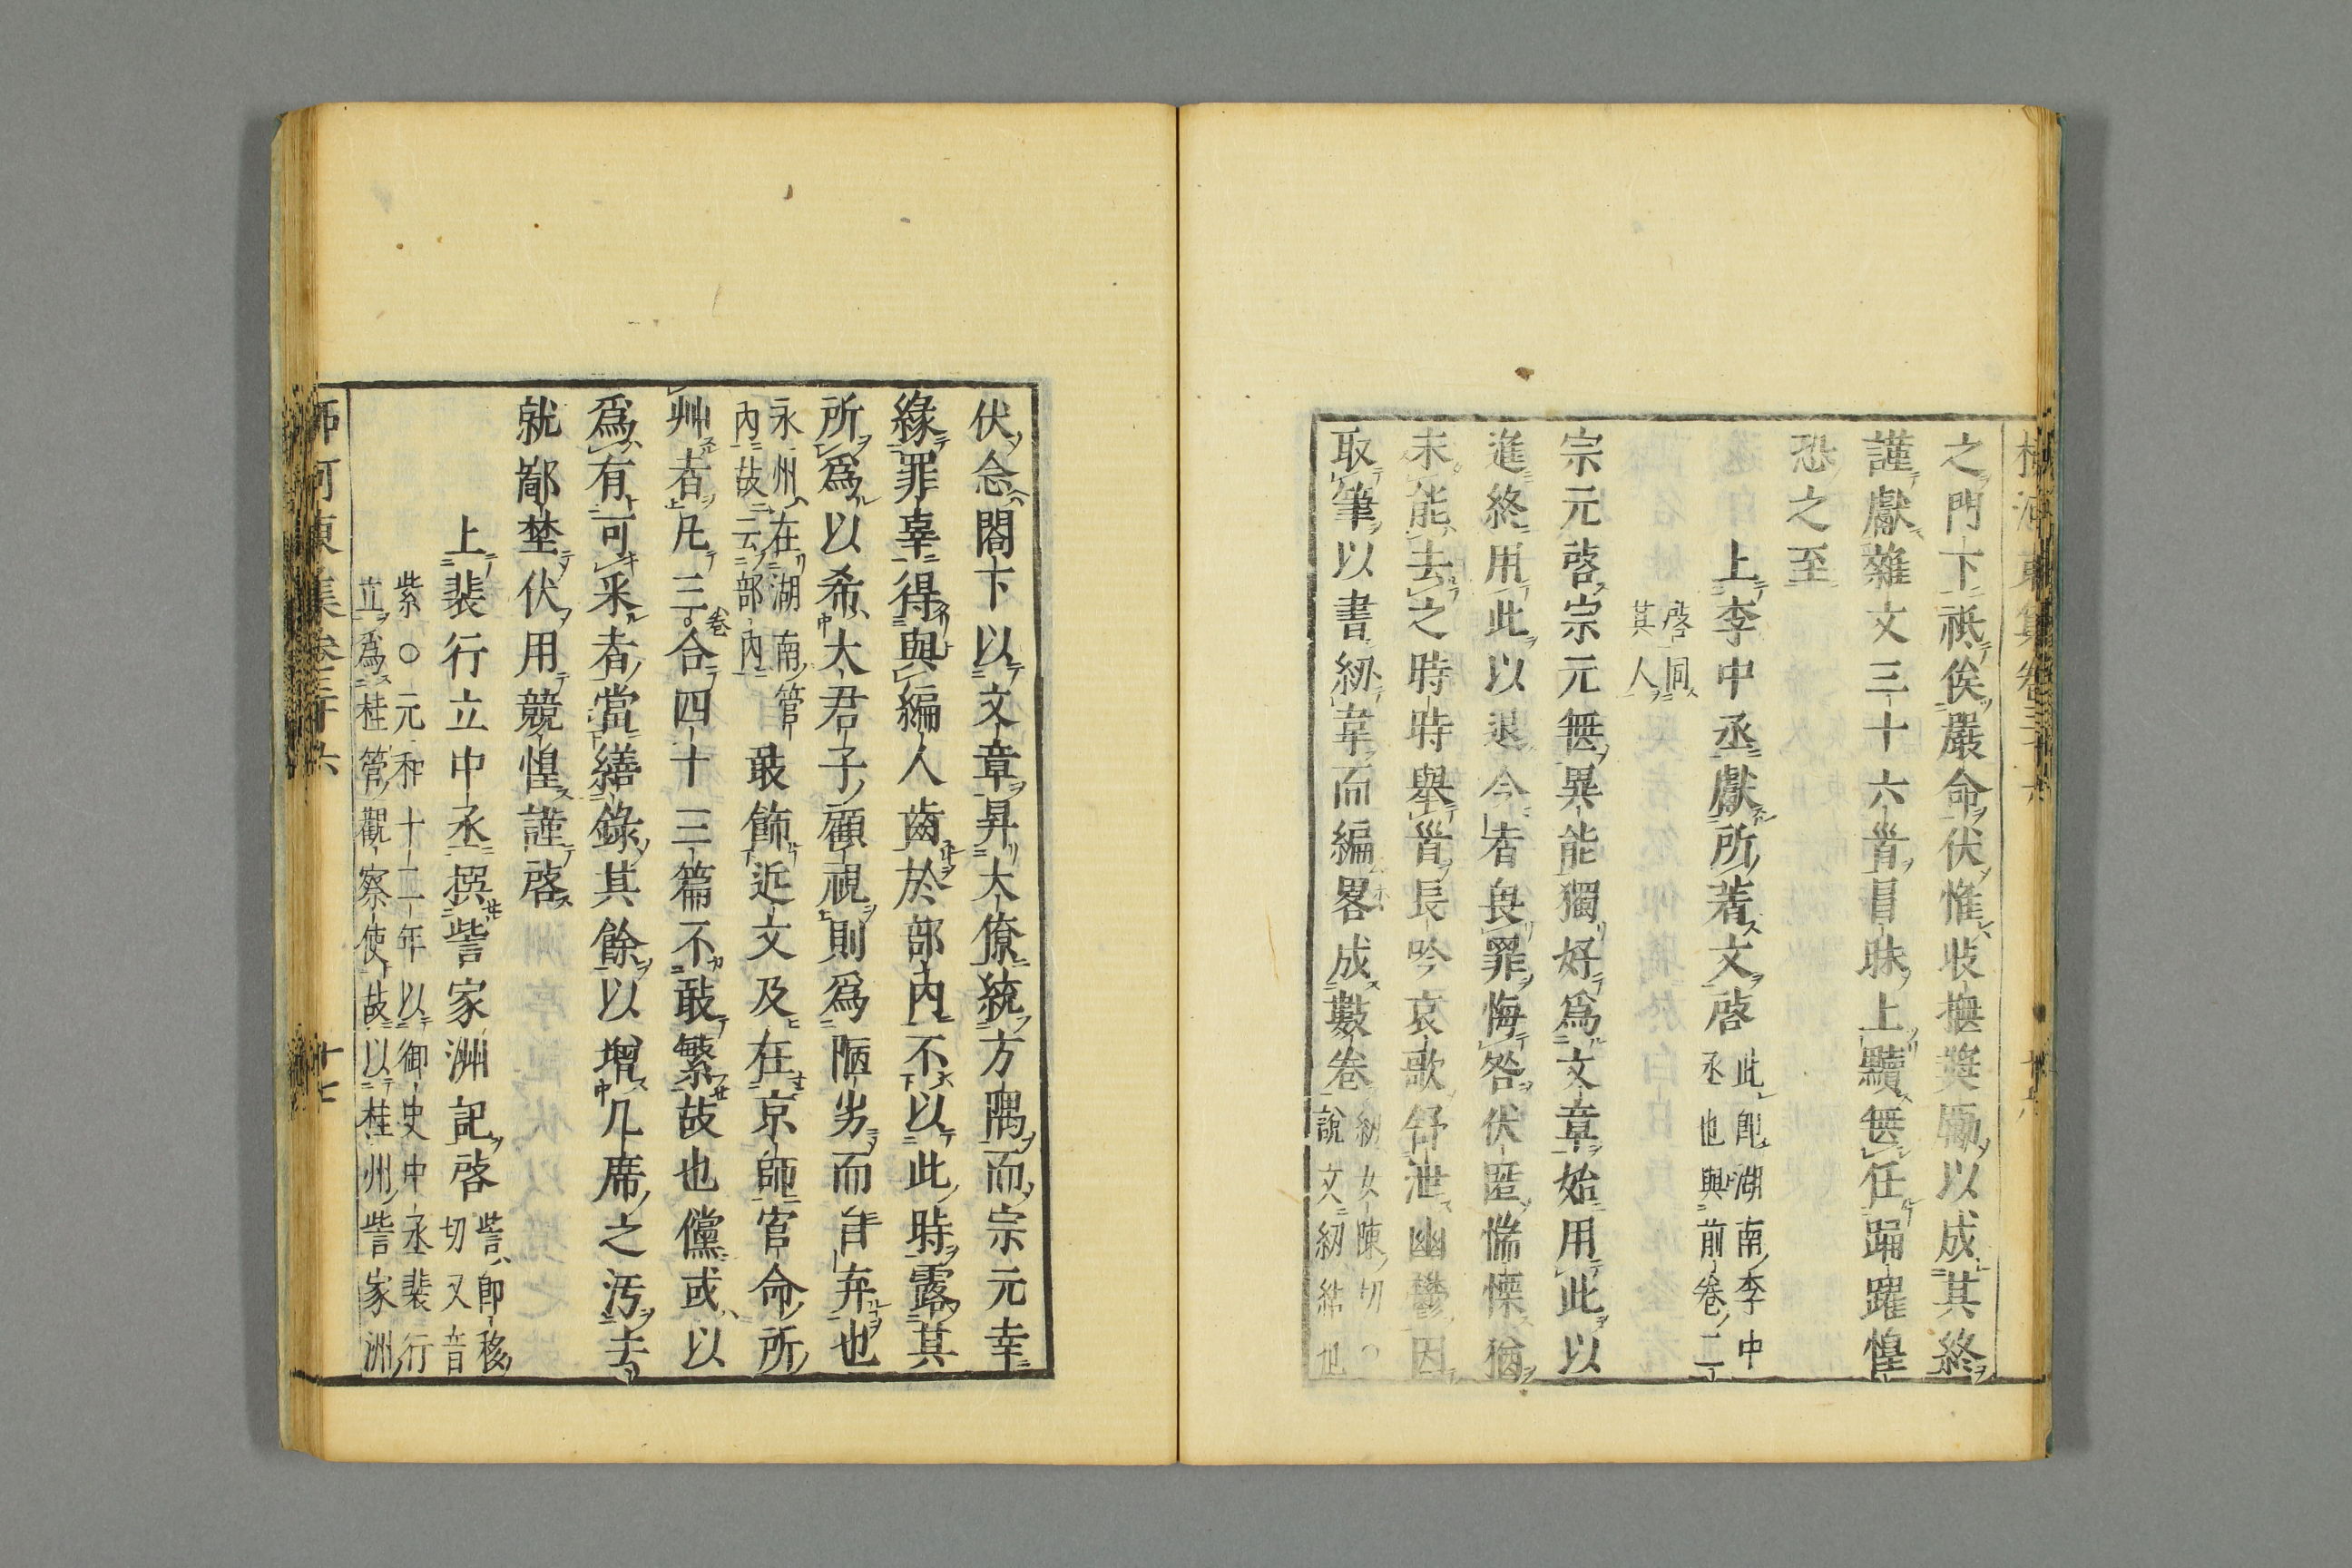 之門下祗俟嚴命伏惟收撫奬勵以成其終
謹獻雜文三十六首冒昧上黷無任踊躍惶
恐之至
上李中丞獻所著文啓 此即湖南李中丞也與前卷二
啓同其人
宗元啓宗元無異能獨好爲文章始用此以
進終用此以退今者畏罪悔咎伏匿惴慄猶
未能去之時時舉首長吟哀歌舒泄幽鬱因
取筆以書紉韋而編畧成數卷 紉女陳切○說文紉
伏念閣下以文章昇大僚統方隅而宗元幸
緣罪辜得與編人齒於部內不以此時露其
所爲以希大君子顧視則爲陋劣而自弃也
永州在湖南管內故云部內 敢飾近文及在京師官命所
艸者凡三卷合四十三篇不敢繁故也儻或以
爲有可采者當繕錄其餘以增几席之汚去
就鄙埜伏用競惶謹啓
上裴行立中丞撰訾家洲記啓 訾即移切又音
紫○元和十二年以御史中丞裴行
立爲桂管觀察使故以桂州訾家洲
河東集卷三十六
十七